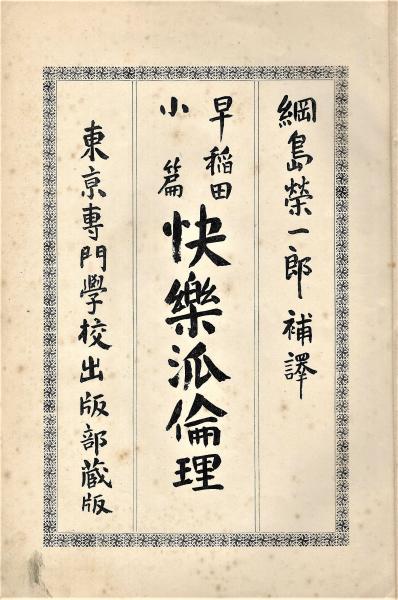 綱島榮一郎 補譯
早稻田小篇
快樂派倫理
東京專門學校出版部藏版